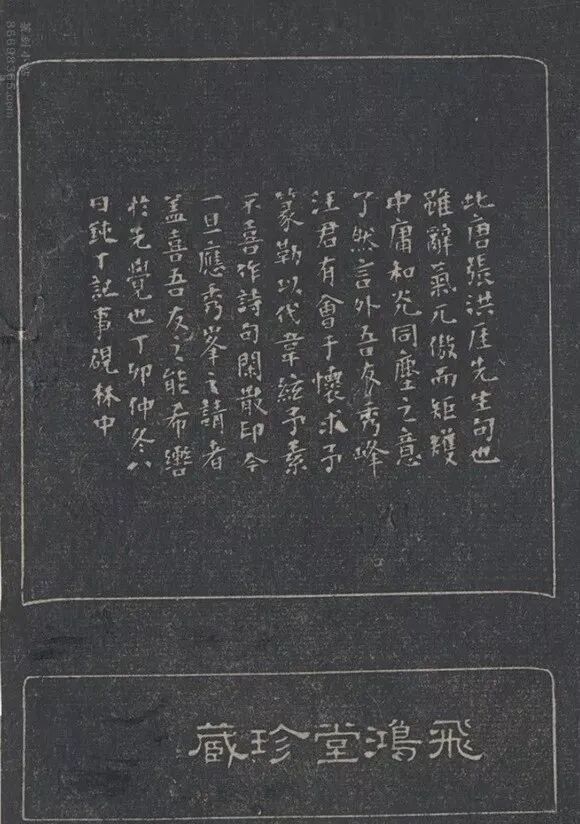 此唐張洪厓先生句也
雖辭氣兀傲而矩矱
中庸和光同塵之意
了然言外吾友秀峰
汪君有會于懷求予
篆勒以代韋絃予素
不喜作詩句閑散印今
一旦應秀峯之請者
盖喜吾友之能希蹤
於先覺也丁卯仲冬八
日鈍丁記事硯林中
飛鴻堂珍蔵